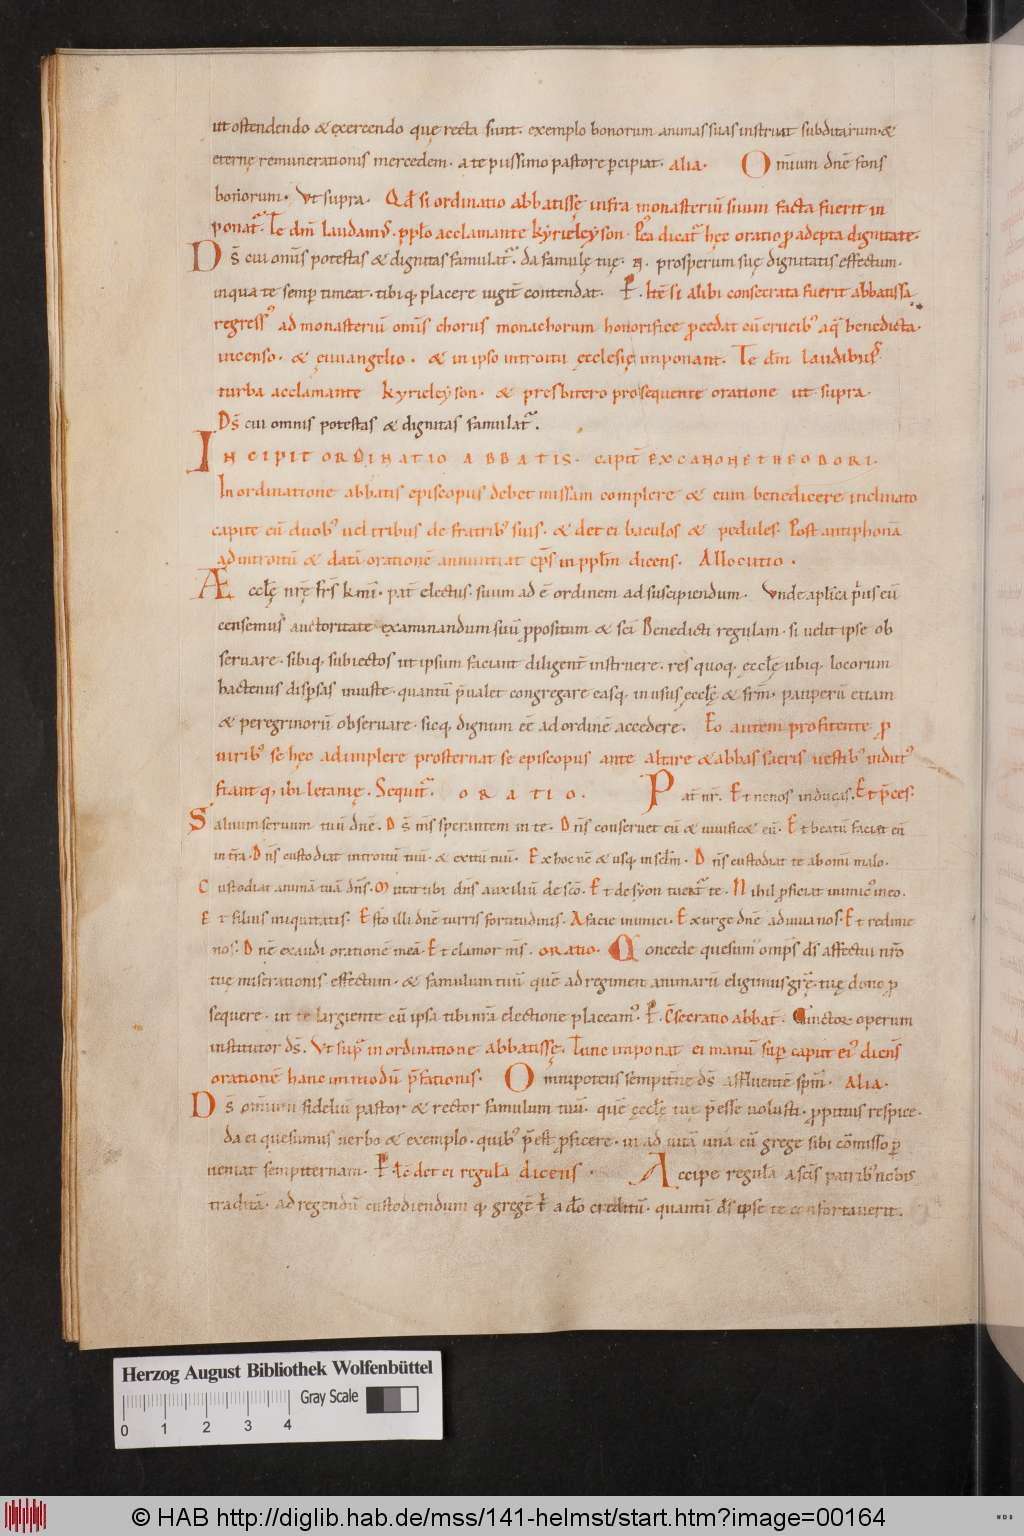 ut ostendendo & exercendo quę recta sunt. exemplo bonorum animas suas instruat subditarum. &
eternę remunerationis mercedem. a te piissimo pastore p̄cipiat. alia. Om̄ium dn̄e fons
bonorum. Vt supra. Qđ si ordinatio abbatissę infra monasteriū suum facta fuerit in
ponat᷑. Te dm̄ laudam᷒. pp̄lo acclamante kyrieleyson. Pea dicat᷑ hęc oratio p̄ adepta dignitate.
Ds̄ cui om̄is potestas & dignitas famulat᷑. da famulę tuę. N. prosperum suę dignitatis effectum.
in qua te semp̄ timeat. tibiq; placere iugit̄ contendat. R̄. Itē si alibi consecrata fuerit abbatissa
regress᷒ ad monasteriū om̄is chorus monachorum honorifice p̄cedat cū crucib᷒ aq̄ benedicta.
incenso. & ęuuangelio. & in ipso introitu ęcclesię imponant. Te dm̄ laudibus.
turba acclamante kyrieleyson. & presbitero prosequente oratione ut supra.
Ds̄ cui omnis potestas & dignitas famulat᷑.
INCIPIT ORDINATIO ABBATIS. capit̄ EX CANONE THEODORI.
In ordinatione abbatis episcopus debet missam complere & eum benedicere inclinato
capite cū duob᷒ uel tribus de fratrib᷒ suis. & det ei baculos & pedules. Post antiphonā
ad introitū & datā orationē annuntiat ep̄s in pp̄lm̄ dicens. Allocutio.
Æcclę̄ nr̄ę frs̄ kmī. pat̄ electus. suum ad ē ordinem ad suscipiendum. Vnde apl̄ica p̄us eū
censemus auctoritate examinandum suū p̄positum & scī Benedicti regulam. si uelit ipse ob
seruare. sibiq; subiectos ut ipsum faciant diligent̄ instruere. res quoq; ęcclę̄ ubiq; locorum
hactenus disp̄sas iniuste. quantū p̄ualet congregare easq; in usus ęcclę̄ & frm̄. pauperū etiam
& peregrinorū obseruare. sicq; dignum eē ad ordinē accedere. Eo autem profitente p̄
uirib᷒ se hęc adimplere prosternat se episcopus ante altare & abbas sacris uestib᷒ indut᷒
fiantq; ibi letanię. Sequit᷑. ORATIO. Pat̄ nr̄. Et ne nos inducas. Et p̄ces.
Saluum seruum tuū dn̄e. Ds̄ m̄s sperantem in te. Dn̄s conseruet eū & uiuificę eū. Et beatū faciat eū
in tr̄a. Dn̄s custodiat introitū tuū. & exitū tuū. Ex hoc nc̄ & usq; in sclm̄. Dn̄s custodiat te ab omī malo.
Custodiat animā tuā dn̄s. Mittat tibi dn̄s auxiliū de scō. Et de syon tueat᷑ te. Nihil p̄ficiat inimic᷒ in eo.
Et filius iniquitatis. Esto illi dn̄e turris fortitudinis. A facie inimici. Exurge dn̄e adiuua nos. Et redime
nos. Dn̄e exaudi orationē meā. Et clamor m̄s. ORATIO. Concede quesum᷒ omp̄s ds̄ affectui nr̄o
tuę miserationis effectum. & famulum tuū quē ad regimen animarū eligimus gr̄ę tuę dono p̄
sequere. ut te largiente cū ipsa tibi nr̄a electione placeam᷒. R̄. Cs̄ecratio abbat̄. Cunctor̄ operum
institutor ds̄. Vt sup̄ in ordinatione abbatissę. Tunc imponat ei manū sup̄ caput ei᷒ dicens
orationē hanc in modū p̄fationis. Omnipotens sempit̄ne ds̄ affluentē spm̄. ALIA.
Ds̄ omnium fideliū pastor & rector famulum tuū. quē ęcclę̄ tuę p̄esse uolusti. p̄pitius respice.
da ei quesumus uerbo & exemplo. quib᷒ p̄est p̄ficere. ut ad uitā una cū grege sibi com̄isso p̄
ueniat sempiternam. R̄. Tc̄ det ei regula dicens. Accipe regula a scīs patrib᷒ nobis
traditā. ad regendū custodiendum q; gregē t̄ a do creditū. quantū ds̄ ipse te confortauerit.
Herzog August Bibliothek Wolfenbüttel
Gray Scale
0 1 2 3 4
© HAB http://diglib.hab.de/mss/141-helmst/start.htm?image=00164